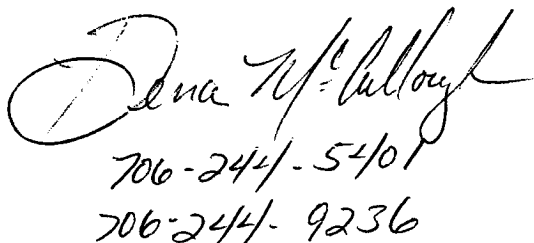 Dena McCullough
706-244-5401
706-244-9236